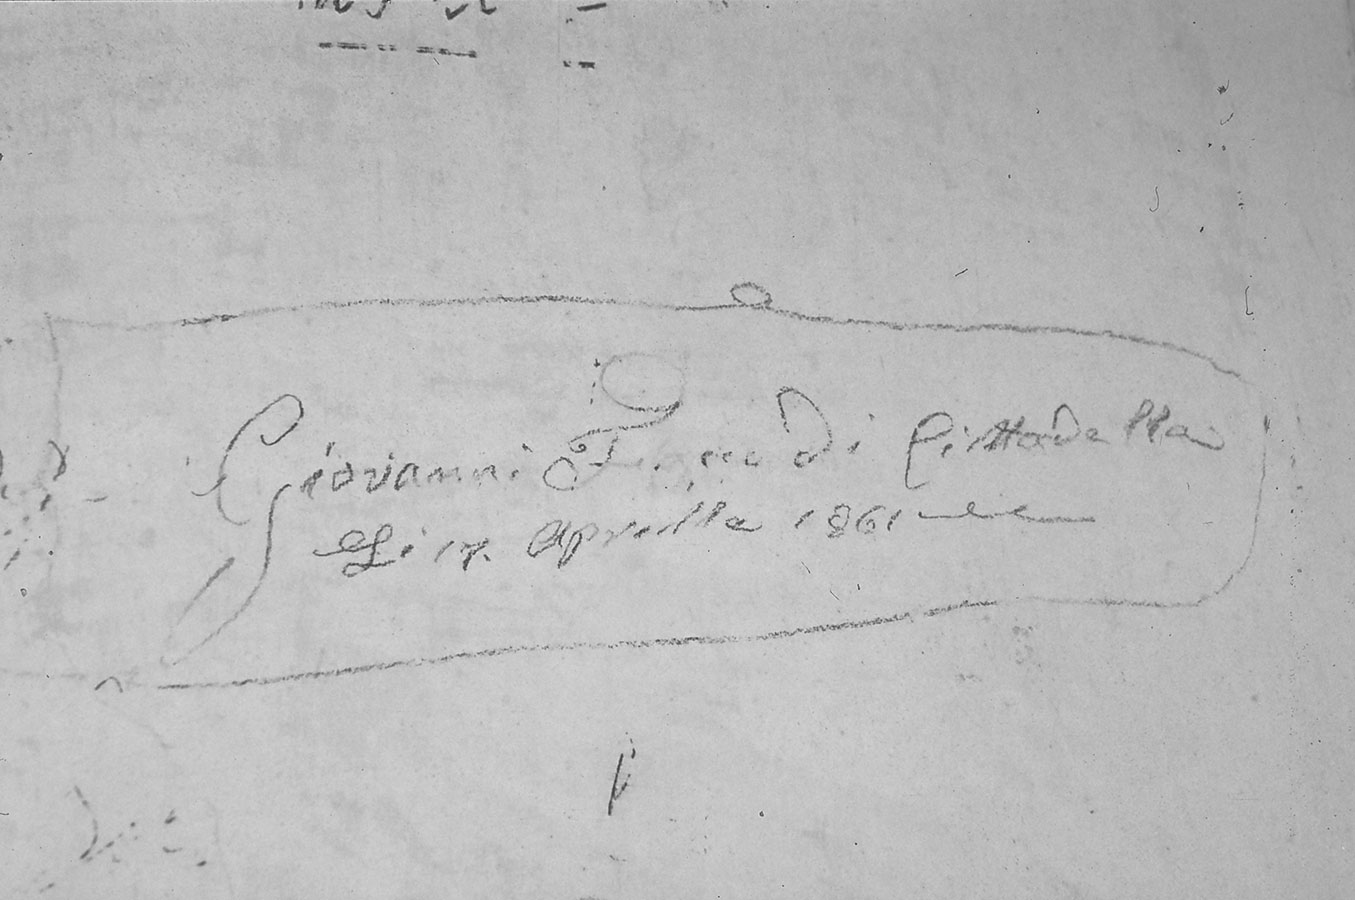 Giovanni di Cittadella
Li 17. Aprille 1861